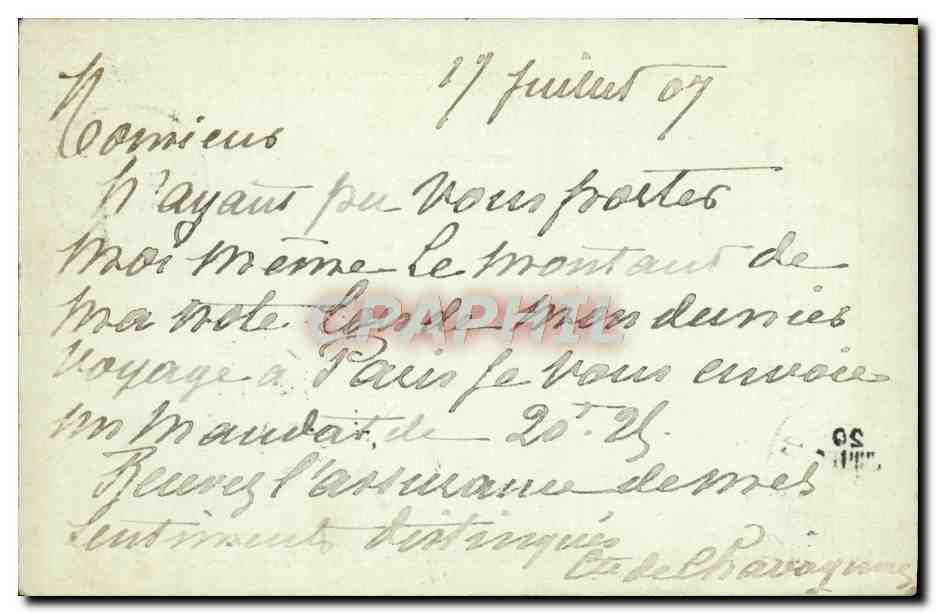 17 Juillet 07
Monsieur
N'ayant pu vous porter
moi même le montant de
ma note lors de mon dernier
voyage à Paris je vous envoie
un mandat de 20f.25.
Recevez l'assurance de mes
sentiments distingués
Cte de Chavagnac
CPAPHIL
20